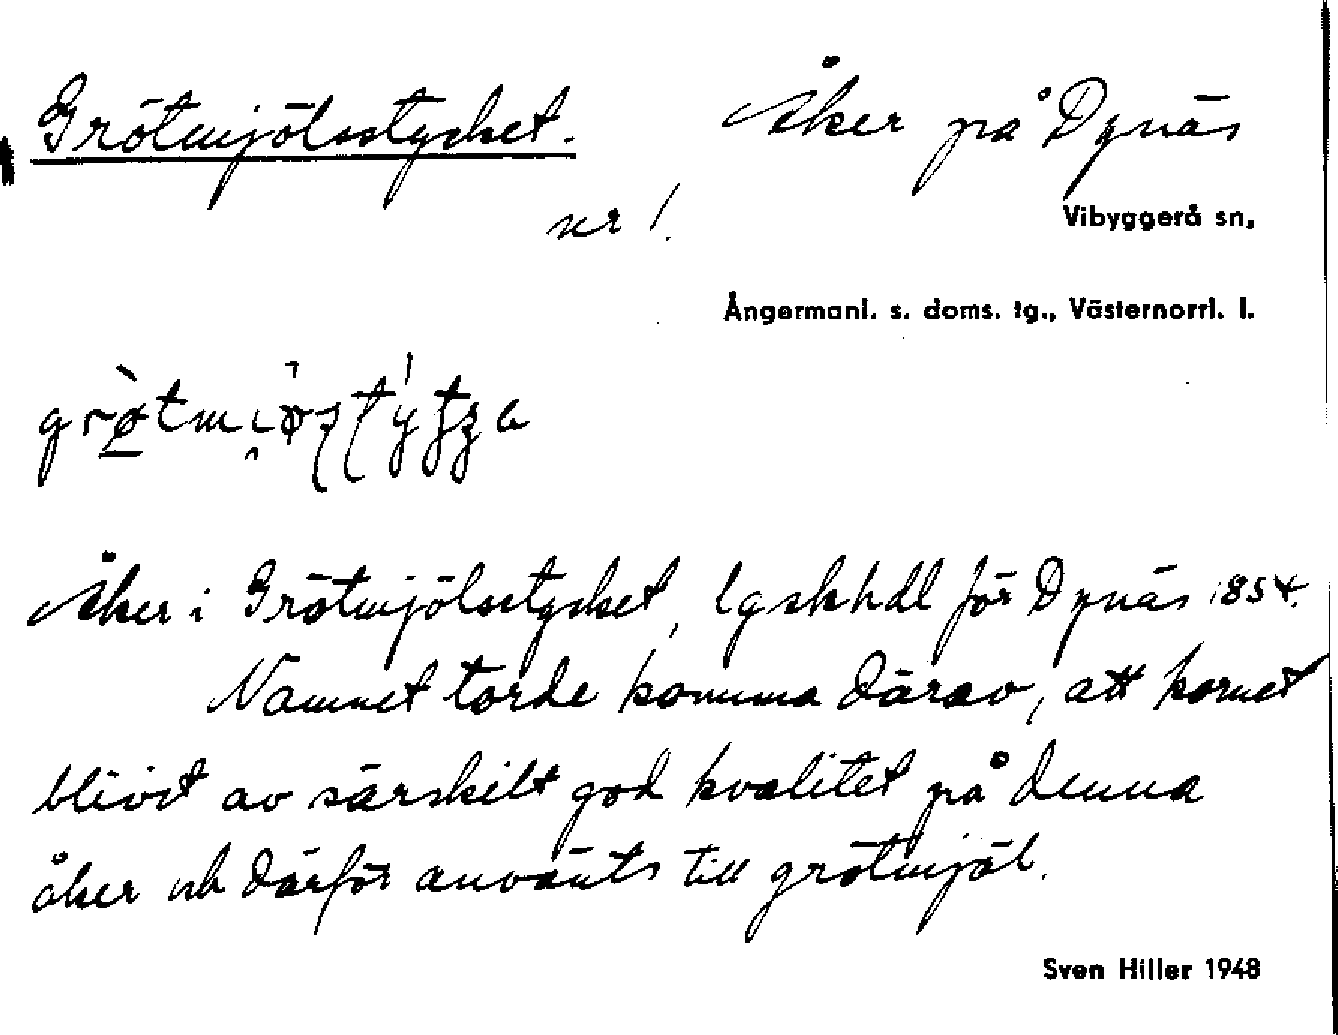 Grötmjölsstycket. Åker på Dynäs
nr 1.
Vibyggerå sn,
Ångermanl. s. doms. tg., Västernorrl. l.
Åker i Grötmjölsstycket, lgskhdl för Dynäs 1854.
Namnet torde komma därav, att kornet
blivit av särskilt god kvalitet på denna
åker och därför använts till grötmjöl.
Sven Hiller 1948